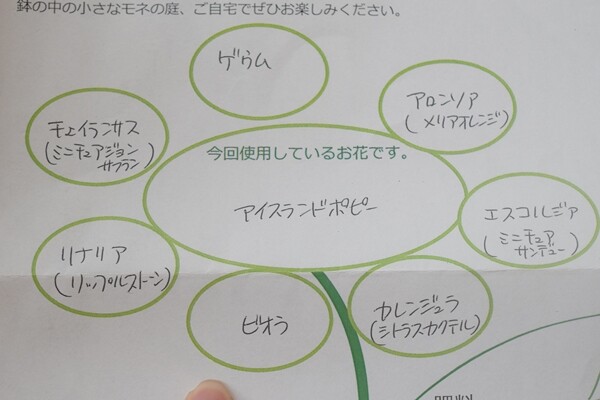 鉢の中の小さなモネの庭、ご自宅でぜひお楽しみください。
ゲウム
アロンソア
(メリアオレンジ)
チェイランサス
(ミニチュアジョン
サフラン)
今回使用しているお花です。
アイスランドポピー
エスコルジア
(ミニチュア
サンデュー)
リナリア
(リップルストーン)
ビオラ
カレンジュラ
(シトラスカクテル)